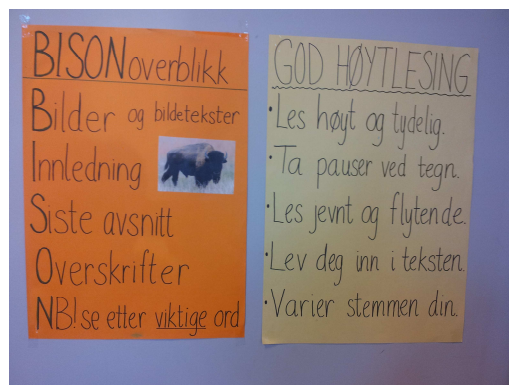 BISON overblikk
Bilder og bildetekster
Innledning
Siste avsnitt
Overskrifter
NB! se etter viktige ord
GOD HØYTLESING
• Les høyt og tydelig.
• Ta pauser ved tegn.
• Les jevnt og flytende.
• Lev deg inn i teksten.
• Varier stemmen din.